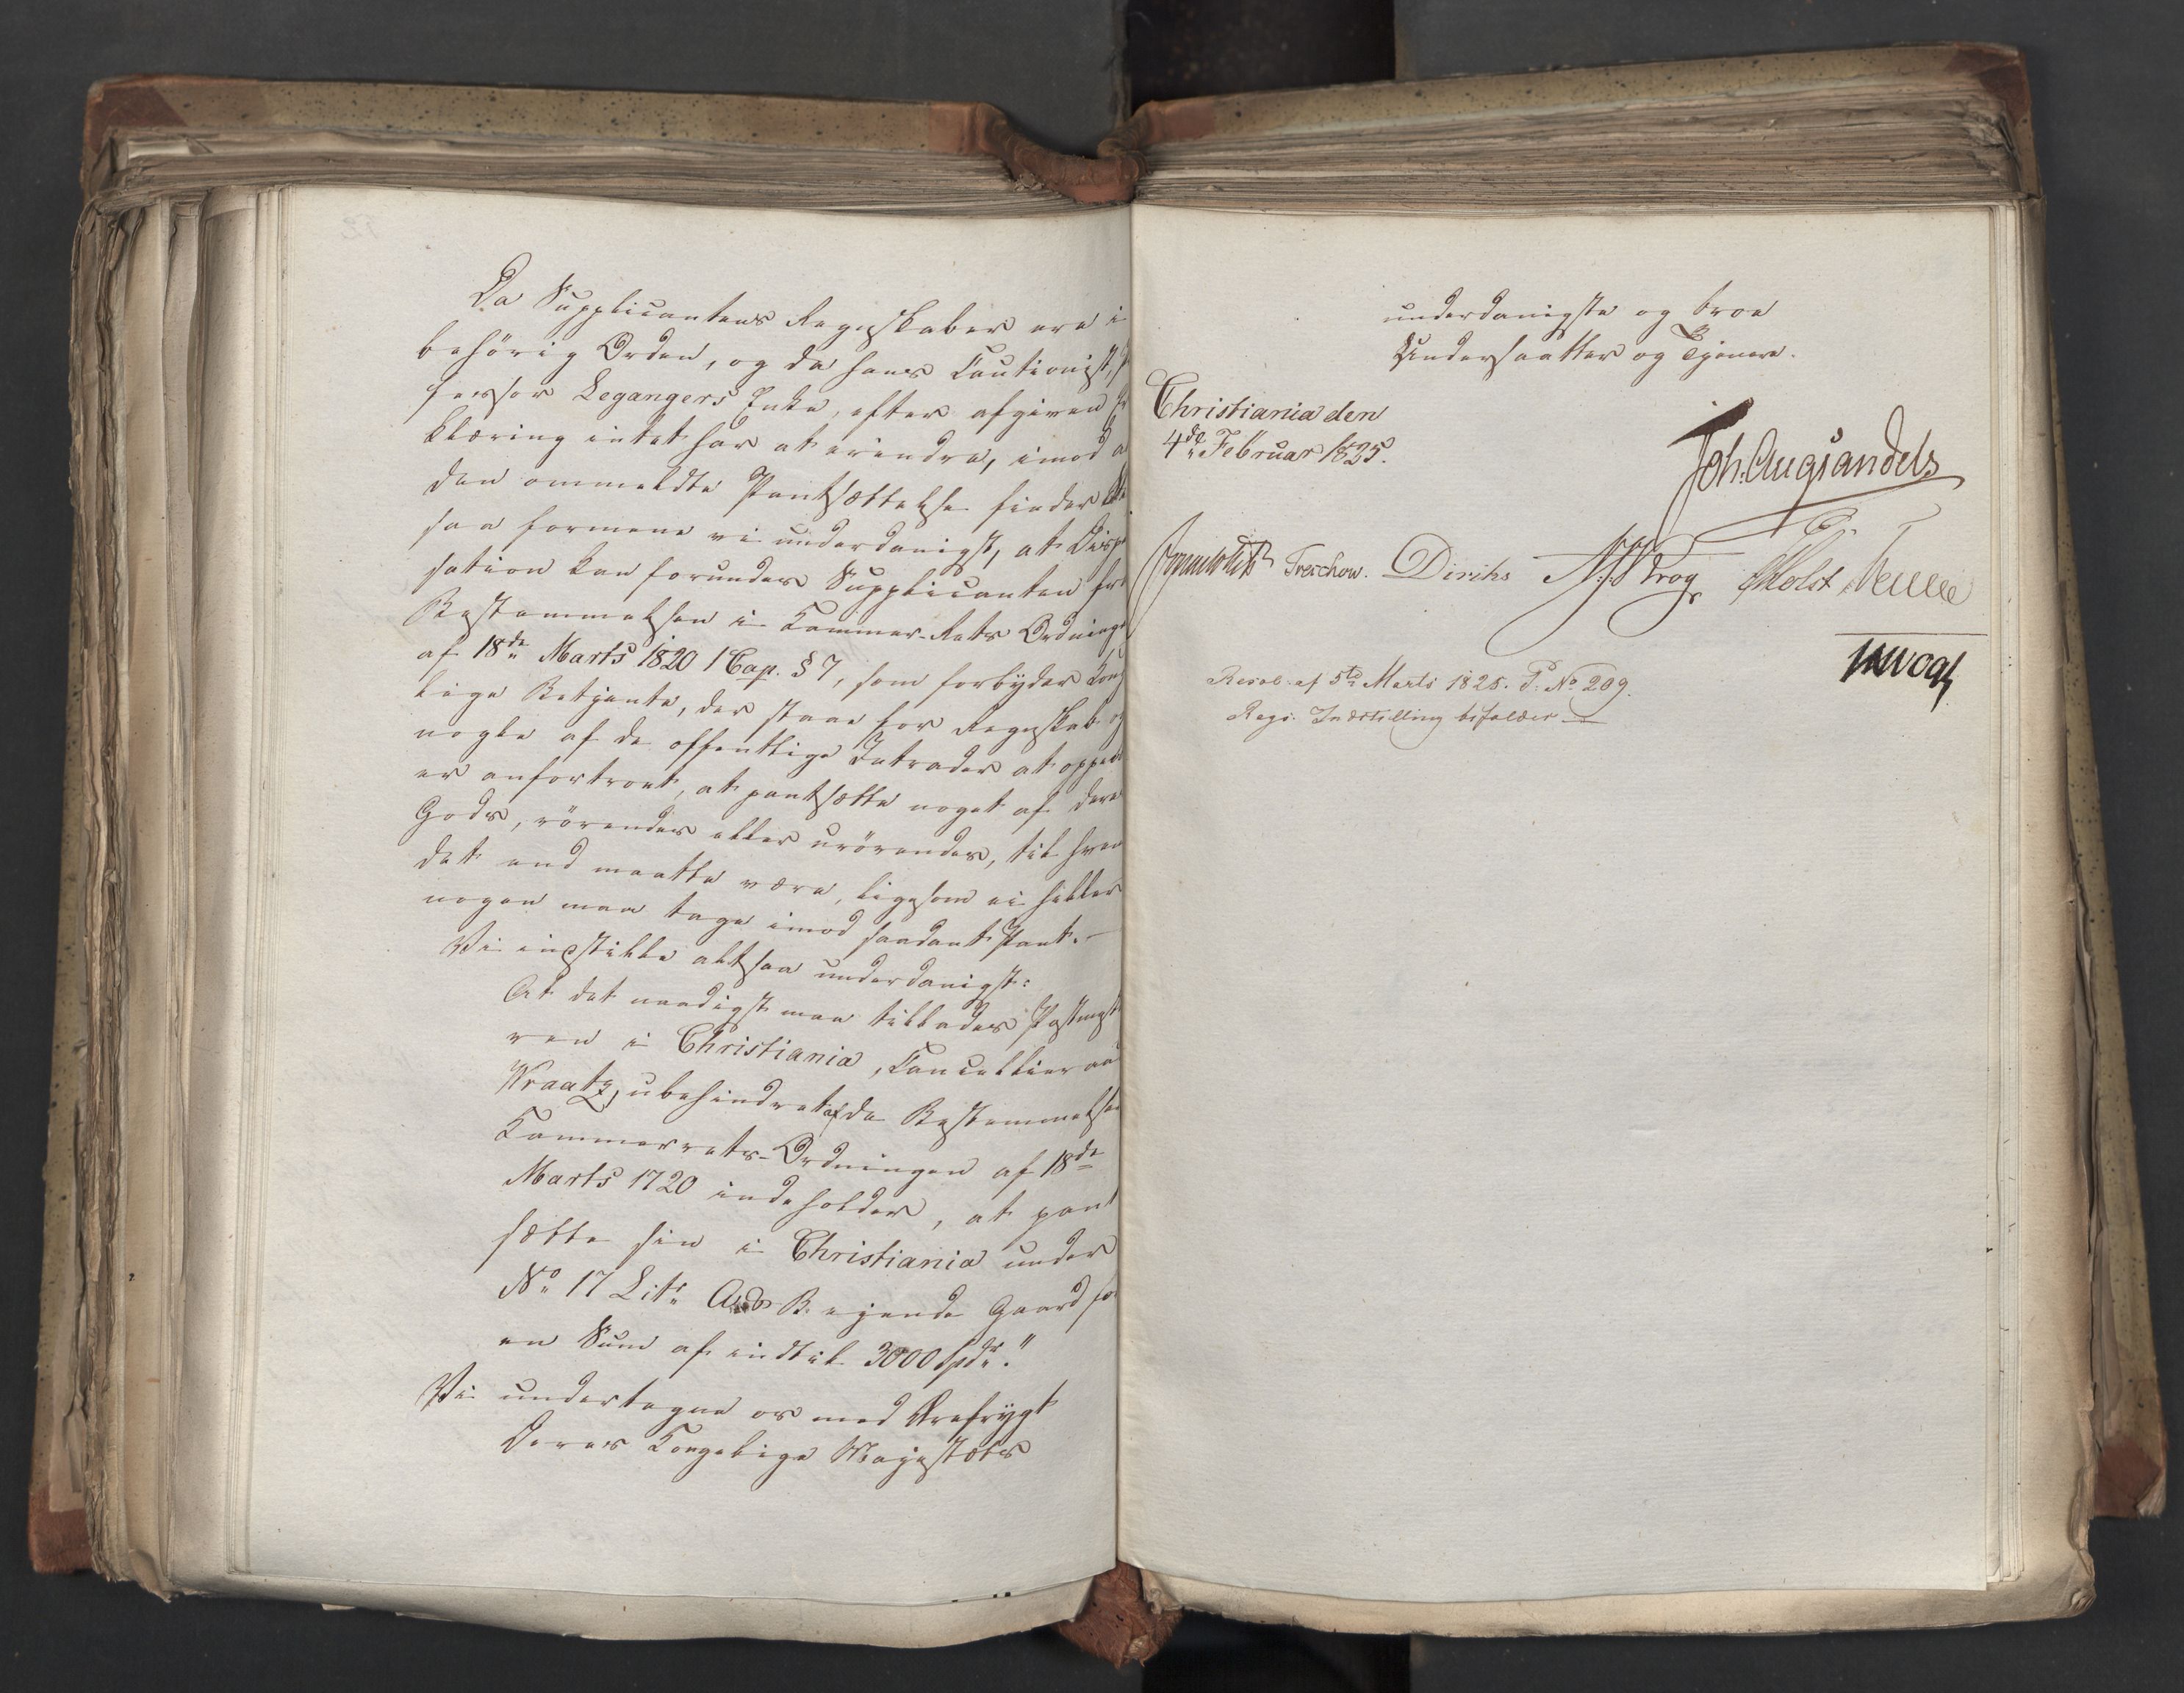 Da Supplicantens Regnskaber ere i
behörig Orden, og da hans Cautionist, P
fessor Legangers Enke, efter afgiven Er
klæring intet har at erindre, imod a
den ommeldte Pantsættelse finder Ste
saa formene vi underdanigst, at Dispe
sation kan forundes Supplicanten fra
Bestemmelsen i Kammer-Rets Ordning
af 18de Marts 1820 1 Cap. § 7, som forbyder Kong
lige Betjente, der staae for Regnskab og
nogle af de offentlige Intrader at oppe
er anfortroet, at pantsætte noget af dere
Gods, rörendes eller urörendes, til hvem
det end maatte være, ligesom ei heller
nogen maa tage imod saadant Pant. —
Vi indstille altsaa underdanigst:
At det naadigst maa tillades Postmeste
ren i Christiania, Cancellieraad
Wraatz, ubehindret af de Bestemmelser
Kammerrets-Ordningen af 18de
Marts 1720 indeholder, at pant
sætte sin i Christiania under
No 17 Litr. A og B. ejende Gaard for
en Sum af indtil 3000 Spdr."
Vi undertegne os med Ærefrygt
Deres Kongelige Majestæts
underdanigste og troe
Undersaatter og Tjenere.
Christiania den
4de Februar 1825.
Joh. Aug. Sandels
Treschow. Diriks Krog Holst
Resol. af 5te Marts 1825. P. No 209.
Regs. Indstilling bifaldes —
JHVogt